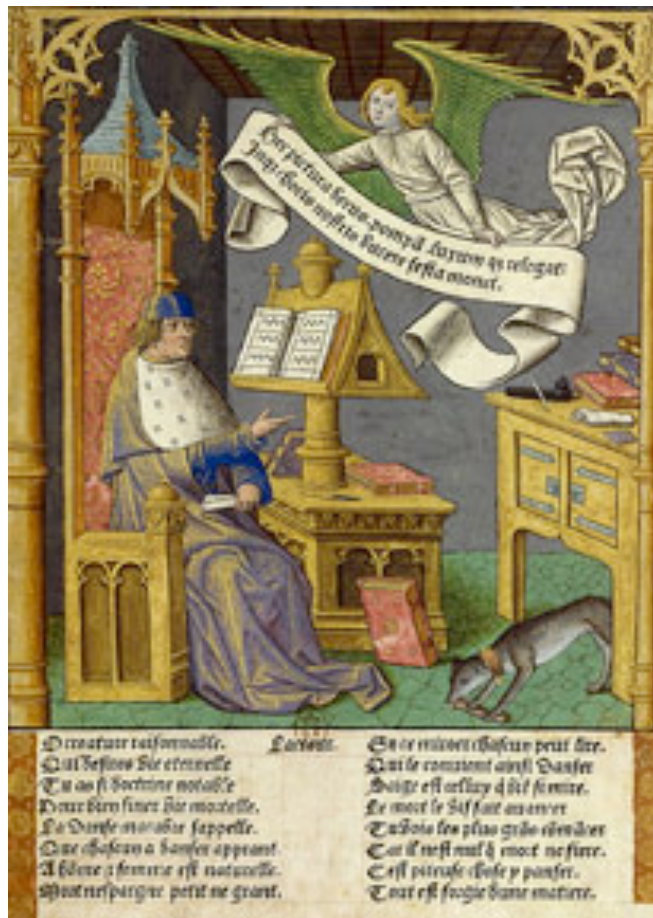 Hec pictura decus. pompā. luxum qȝ relegat:
Inqȝ choris nostris ducere festa monet.
O creature raisonnable.
Qui desires vie eternelle
Tu as si doctrine notable
Pour bien finer vie mortelle.
La Danse macabre sappelle.
Que chascun a danser apprant
A hōme z femme est naturelle.
Mort nespargne petit ne grant.
Lacteur.
En ce miroer chascun peut lire.
Qui le convient ainsi danser
Saige est celluy q̄ si mire.
Le mort le vif fait avancer
Tu vois les plus grās cōmācer
Car il nest nul q̄ mort ne fiere.
Cest piteuse chose y panser.
Tout est forgie dune matiere.